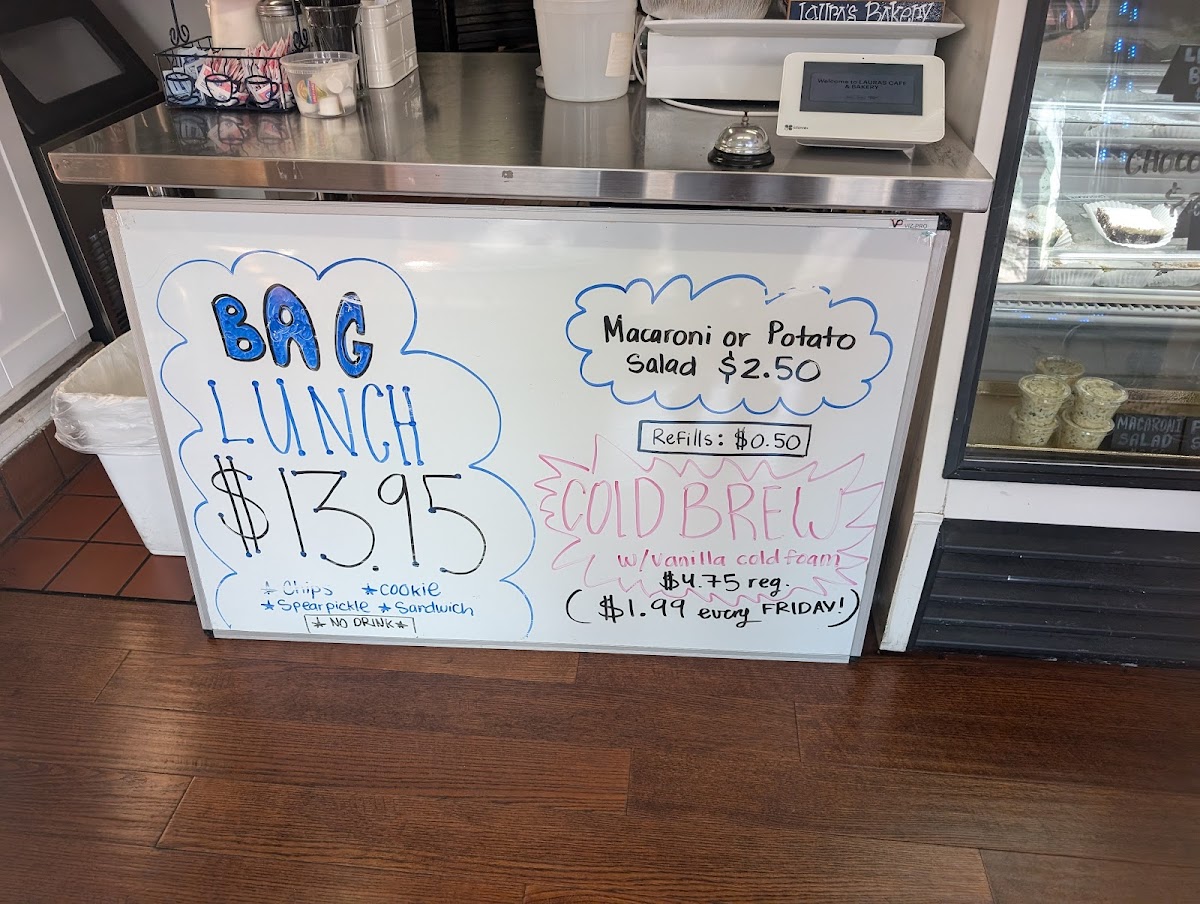 Laura's Bakery
Welcome to LAURAS CAFE
& BAKERY
VIZ-PRO
BAG
LUNCH
$13.95
*Chips *cookie
*Spear pickle *Sandwich
*NO DRINK*
Macaroni or Potato
Salad $2.50
Refills: $0.50
COLD BREW
w/vanilla cold foam
$4.75 reg.
($1.99 every FRIDAY!)
MACARONI
SALAD